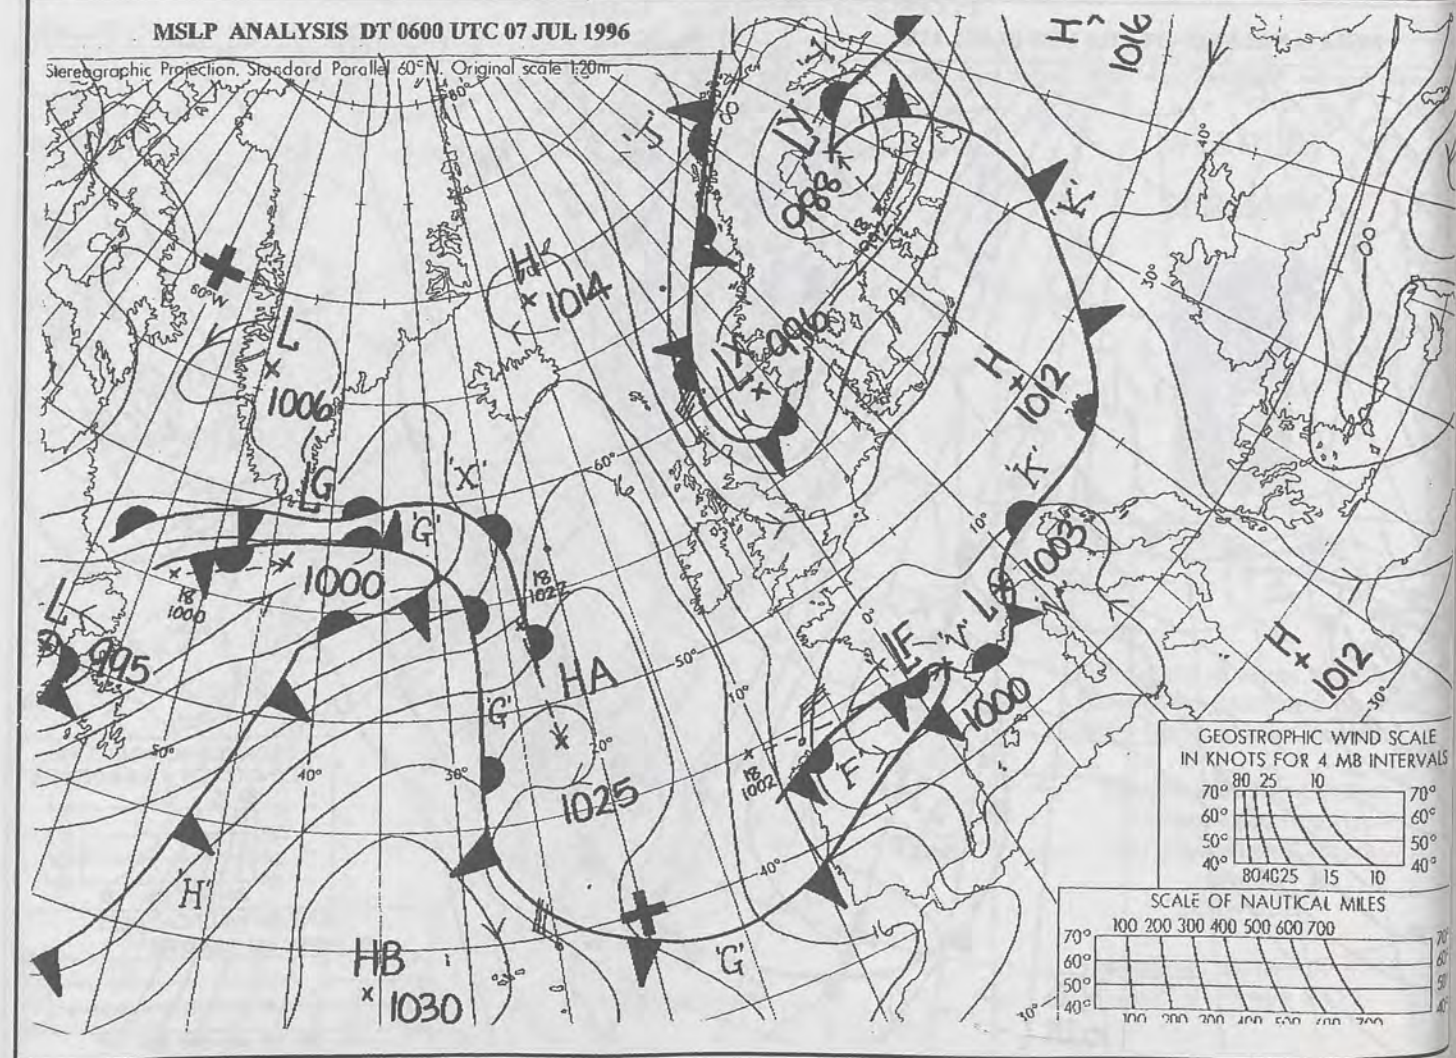 MSLP ANALYSIS DT 0600 UTC 07 JUL 1996
Stereographic Projection. Standard Parallel 60°N. Original scale 1:20m
80°
H
1016
'J'
'J'
LY
986
18
992
'K'
40°
30°
00
60°W
L
1006
H
1014
LX
996
H
1012
'K'
LG
'X'
'G'
60°
16
10°
1003
L
1000
18
1000
18
1022
L
995
HA
1025
'G'
50°
40°
30°
20°
50°
10°
0°
LF
'V'
1000
18
1002
'F'
H
1012
30°
'H'
40°
HB
1030
'G'
16
30°
GEOSTROPHIC WIND SCALE
IN KNOTS FOR 4 MB INTERVALS
80 25 10
70° 70°
60° 60°
50° 50°
40° 40°
80 40 25 15 10
SCALE OF NAUTICAL MILES
100 200 300 400 500 600 700
70° 70°
60° 60°
50° 50°
40° 40°
100 200 300 400 500 600 700